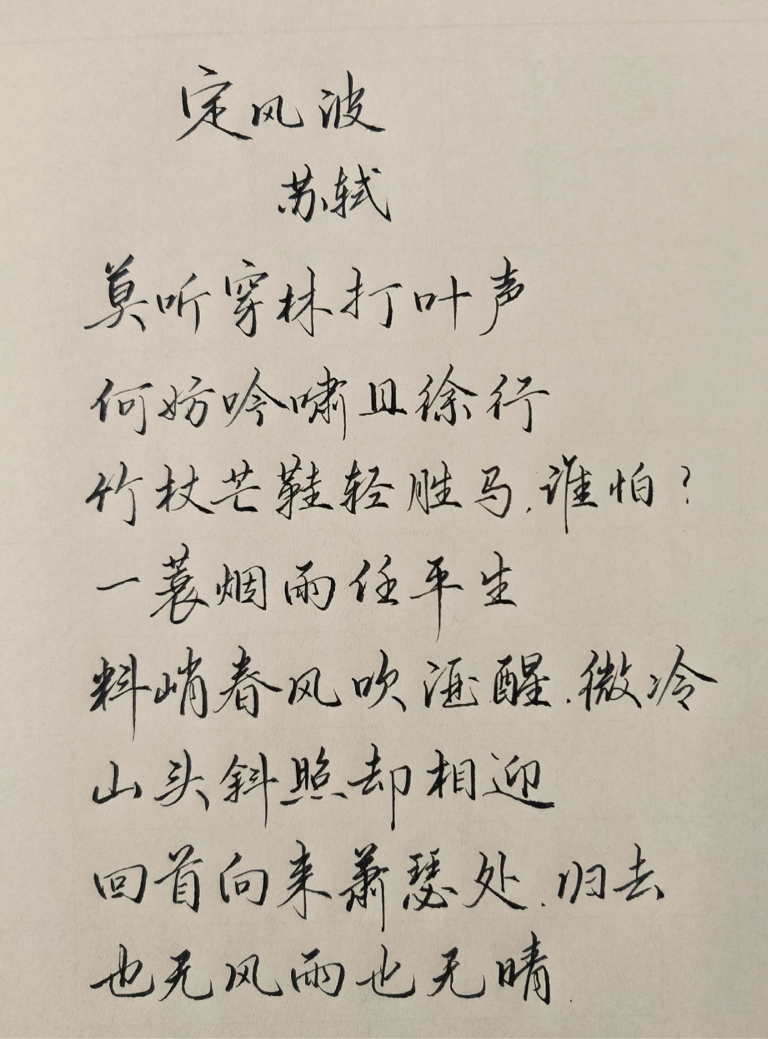 定风波
苏轼
莫听穿林打叶声
何妨吟啸且徐行
竹杖芒鞋轻胜马,谁怕?
一蓑烟雨任平生
料峭春风吹酒醒.微冷
山头斜照却相迎
回首向来萧瑟处.归去
也无风雨也无晴.